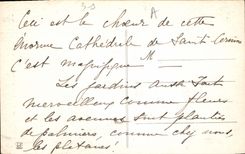 Ceci est le chœur de cette
énorme Cathédrale de Saint
C'est magnifique M
Les jardins aussi sont
merveilleux comme fleurs
et les avenues sont plantées
de palmiers, comme chez nous,
les platanes!